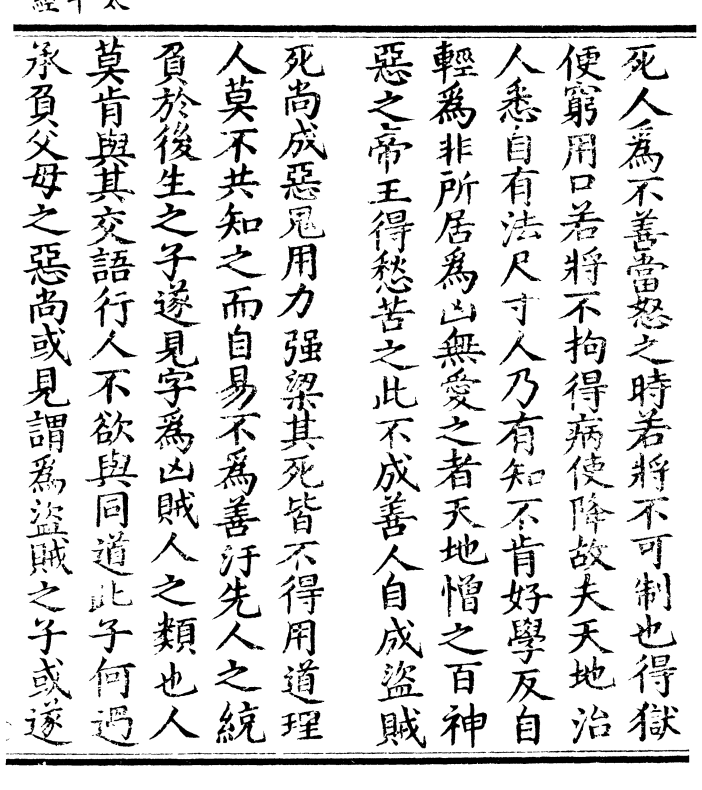 死人爲不善當怒之時若將不可制也得獄
便窮用口若將不拘得病使降故夫天地治
人悉自有法尺寸人乃有知不肯好學反自
輕爲非所居爲凶無愛之者天地憎之百神
惡之帝王得愁苦之此不成善人自成盜賊
死尚成惡鬼用力强梁其死皆不得用道理
人莫不共知之而自易不爲善汙先人之統
負於後生之子遂見字爲凶賊人之類也人
莫肯與其交語行人不欲與同道此子何過
承負父母之惡尚或見謂爲盜賊之子或遂